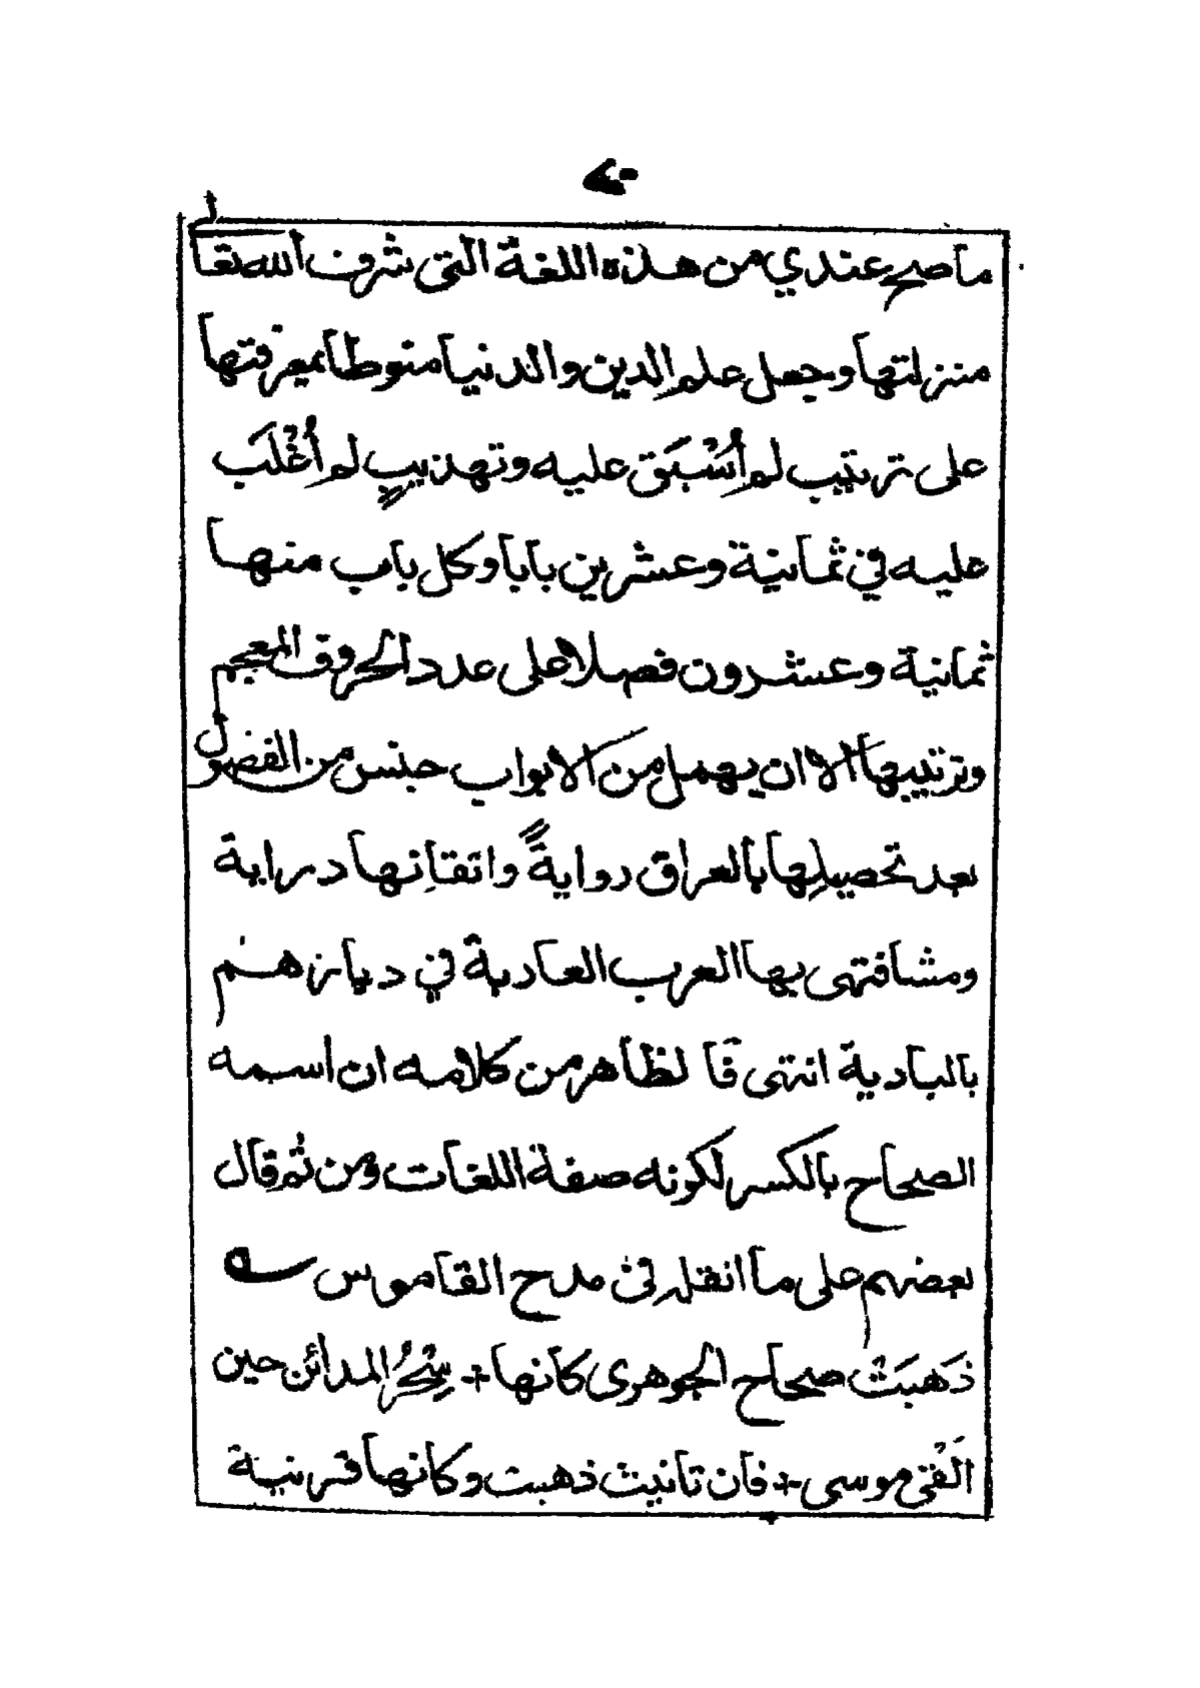 ما صح عندي من هذه اللغة التى شرف الله تعالى
منزلتها وجعل علم الدين والدنيا منوطا بمعرفتها
على ترتيب لم أُسْبَق عليه وتهذيبٍ لم أُغْلَب
عليه في ثمانية وعشرين بابا وكل باب منها
ثمانية وعشرون فصلا على عدد الحروف المعجم
وترتيبها الا ان يهمل من الابواب جنس من الفصول
بعد تحصيلِها بالعراق روايةً واتقانِها دراية
ومشافهتى بها العرب العاربة في ديارهم
بالبادية انتهى فا لظاهر من كلامه ان اسمه
الصحاح بالكسر لكونه صفة اللغات ومن ثم قال
بعضهم على ما انقله فى مدح القاموس
ذَهَبَتْ صحاح الجوهرى كانها سِحْرُ المدائن حين
اَلْقى موسى فان تانيث ذهبت وكانها قرينة